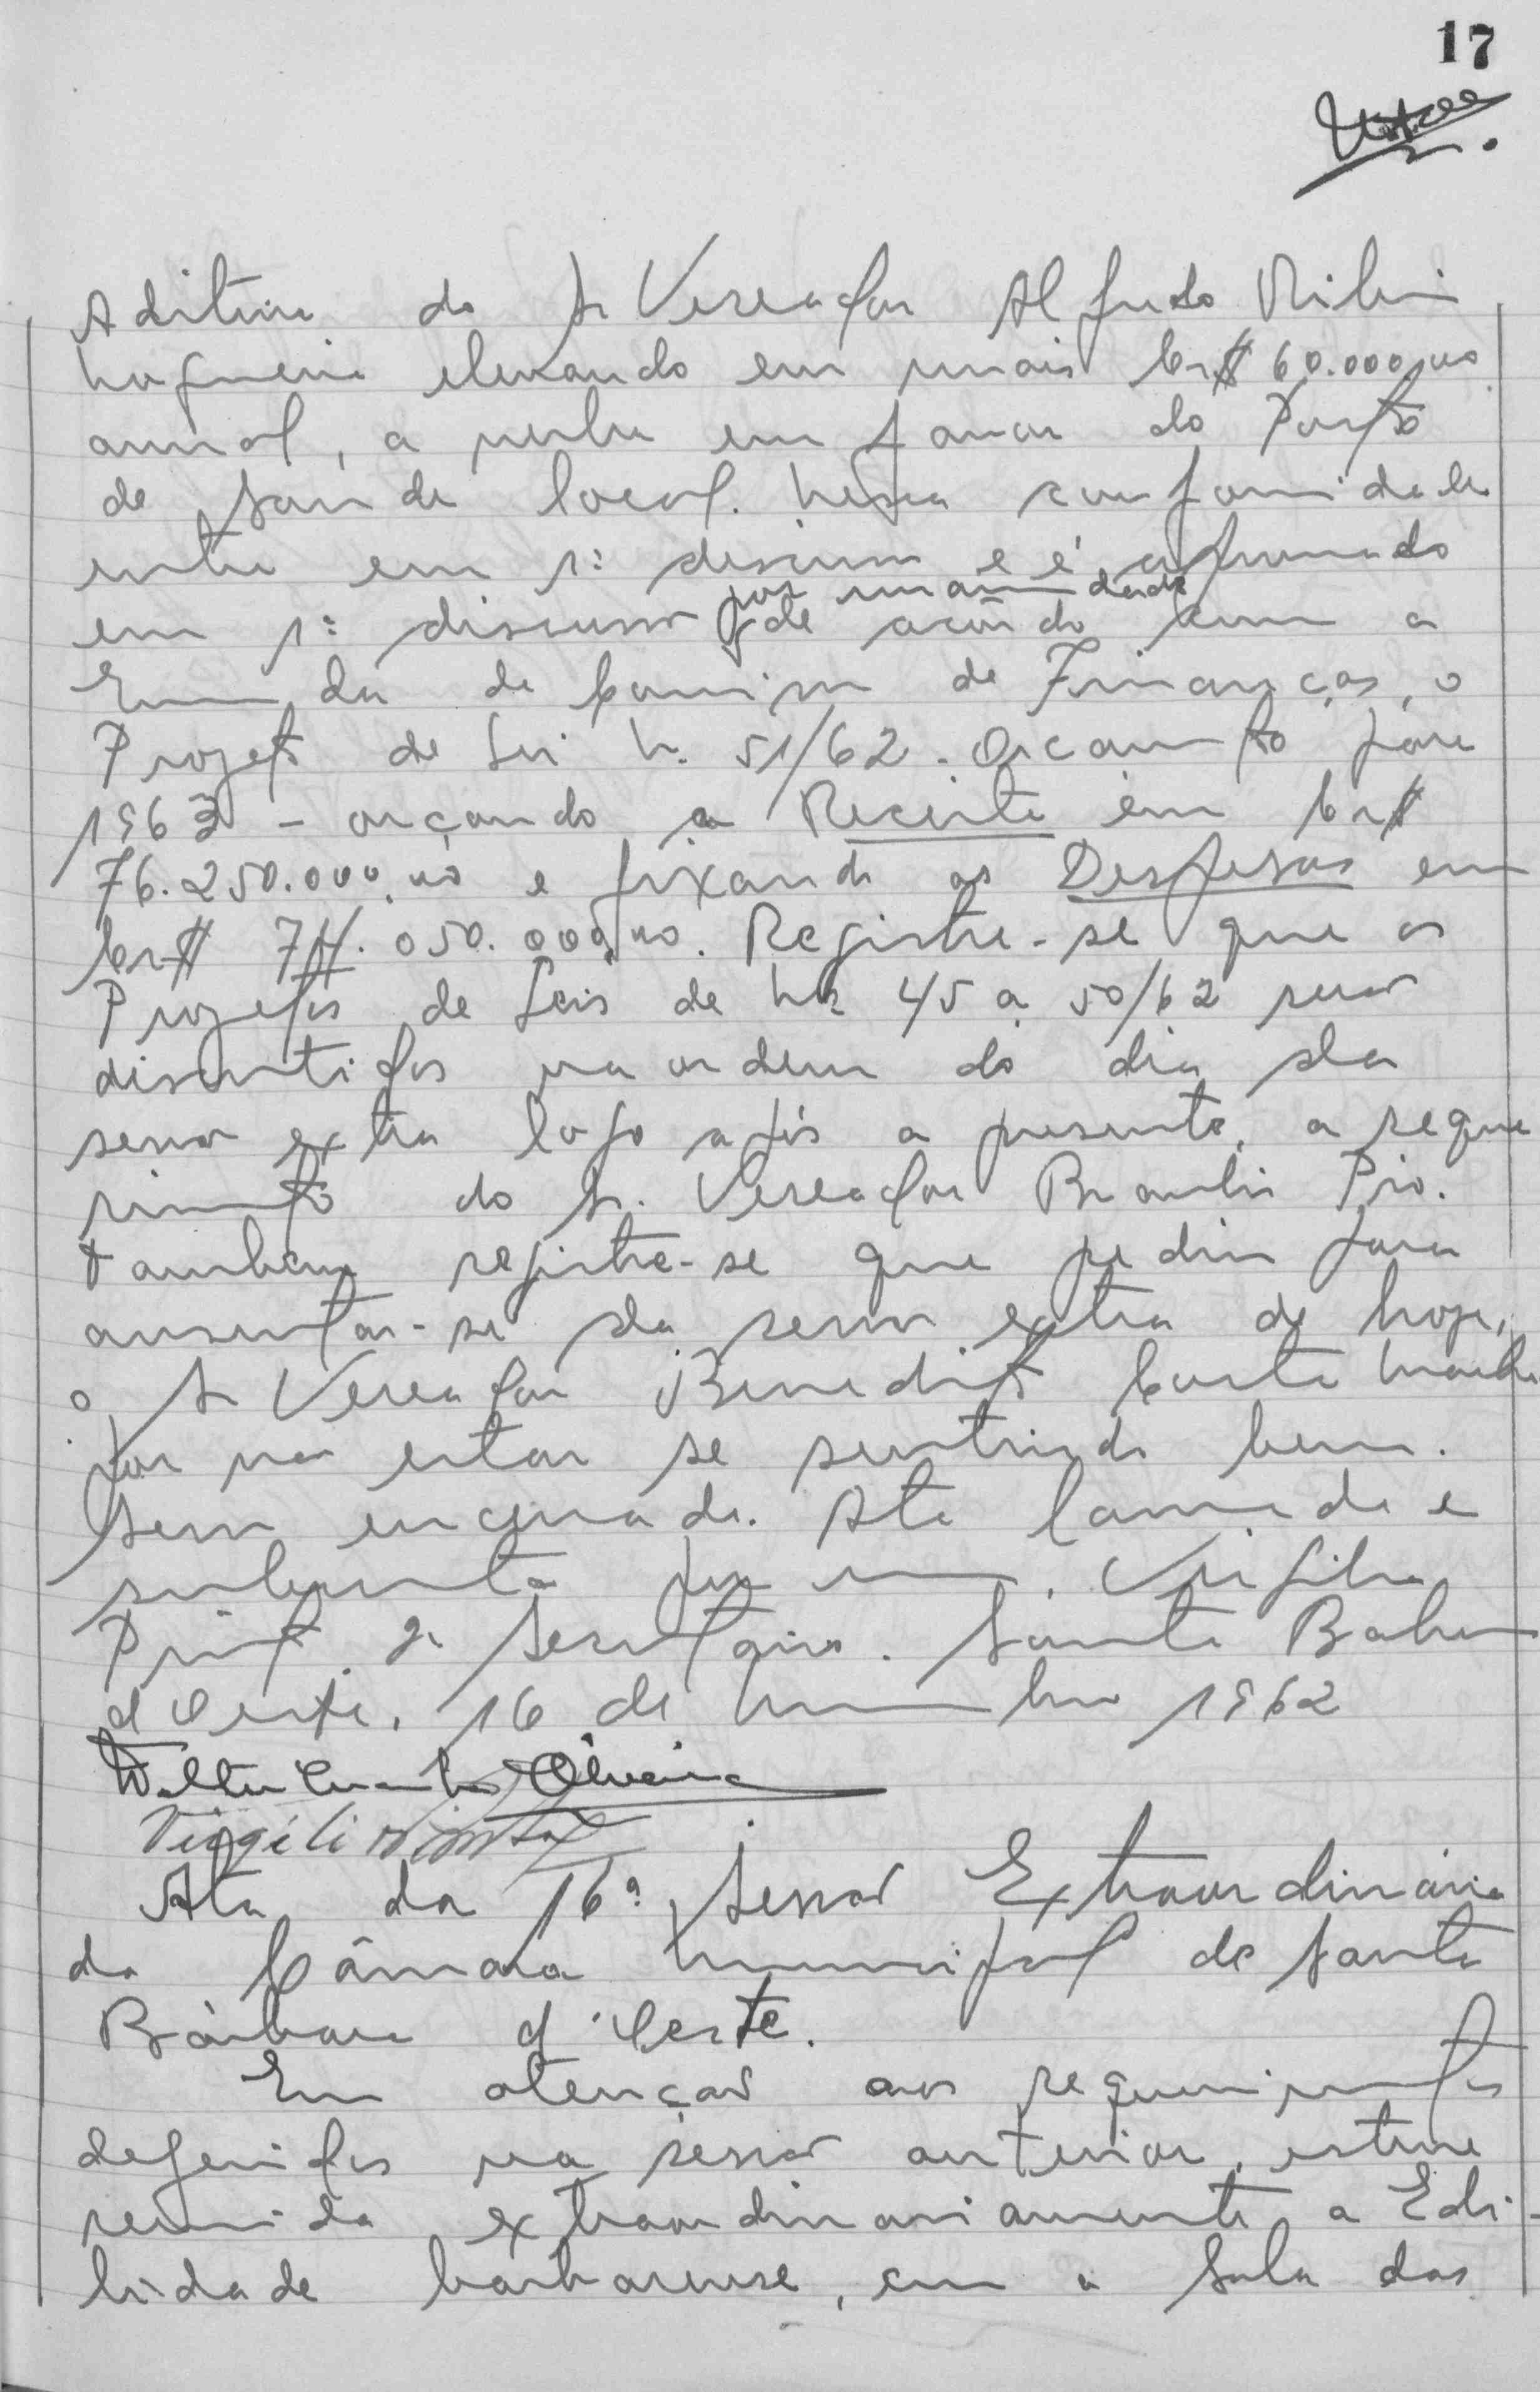 17
Aditiva do Sr Vereador Alfredo Ribeiro
Nogueira elevando em mais Cr$ 60.000,00
annual, a verba em favor do Posto
de Saude local. Nessa conformidade
entra em 1ª discussão e é aprovado
em 1ª discussão por unanimidade de acôrdo com a
Emenda da Comissão de Finanças, o
Projeto de Lei N. 51/62 - Orçamento para
1963 - orçando a Receita em Cr$
76.250.000,00 e fixando as Despesas em
Cr$ 74.050.000,00. Registre-se que os
Projetos de Leis de Nos 45 a 50/62 serão
discutidos na ordem do dia da
sessão extra logo após a presente, a reque
rimento do Sr. Vereador Braulio Pio.
Tambem registre-se que pediu para
ausentar-se da sessão extra de hoje,
o Sr Vereador Benedito Costa Machado
por não estar se sentindo bem.
Sessão encerrada. Ata lavrada e
subscrita por mim, Virgilio
Pinto 2º Secretario. Santa Barbara
d'Oeste, 16 de Novembro 1962
Walter Oliveira
Virgilio Pinto
Ata da 16ª Sessão Extraordinária
da Câmara Municipal de Santa
Bárbara d'Oeste.
Em atenção aos requerimentos
deferidos na sessão anterior, esteve
reunida extraordinariamente a Edi-
lidade barbarense, em a Sala das